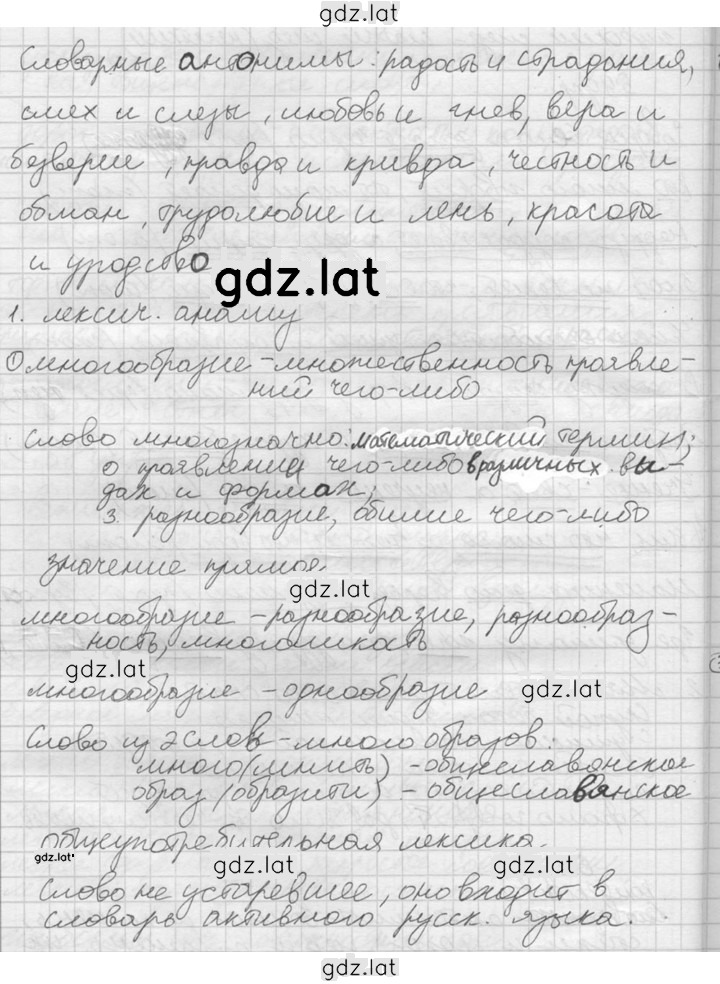 gdz.lat
Словарные антонимы: радость и страдания,
смех и слезы, любовь и гнев, вера и
безверие, правда и кривда, честность и
обман, трудолюбие и лень, красота
и уродство
gdz.lat
1. лексич. анализ
① многообразие - множественность проявле-
ний чего-либо
Слово многозначно: математический термин;
о проявлении чего-либо в различных ви-
дах и формах;
3. разнообразие, обилие чего-либо
значение прямое.
gdz.lat
многообразие - разнообразие, разнообраз-
ность, многоликость
gdz.lat
многообразие - однообразие gdz.lat
Слово из 2 слов - много образов:
много - общеславянское
образ (образити) - общеславянское
общеупотребительная лексика.
gdz.lat gdz.lat gdz.lat
Слово не устаревшее, оно входит в
словарь активного русск. языка.
gdz.lat